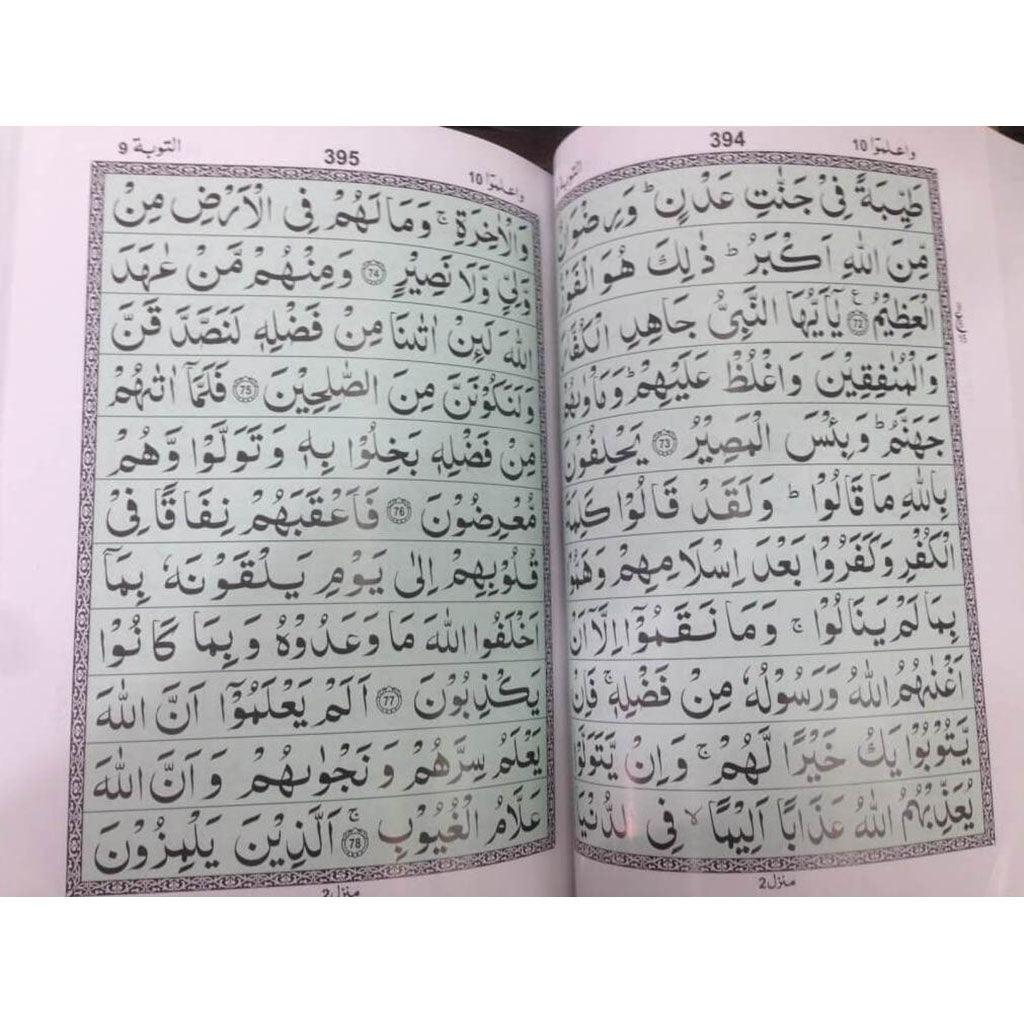 394
واعلموا 10
طَيِّبَةً فِيْ جَنّٰتِ عَدْنٍ ؕ وَرِضْوَانٌ
مِّنَ اللّٰهِ اَكْبَرُ ؕ ذٰلِكَ هُوَ الْفَوْزُ
الْعَظِيْمُ 72 يٰۤاَيُّهَا النَّبِيُّ جَاهِدِ الْكُفَّارَ
وَالْمُنٰفِقِيْنَ وَاغْلُظْ عَلَيْهِمْ ؕ وَمَاْوٰىهُمْ
جَهَنَّمُ ؕ وَبِئْسَ الْمَصِيْرُ 73 يَحْلِفُوْنَ
بِاللّٰهِ مَا قَالُوْا ؕ وَلَقَدْ قَالُوْا كَلِمَةَ
الْكُفْرِ وَكَفَرُوْا بَعْدَ اِسْلَامِهِمْ وَهَمُّوْا
بِمَا لَمْ يَنَالُوْا ۚ وَمَا نَقَمُوْۤا اِلَّاۤ اَنْ
اَغْنٰىهُمُ اللّٰهُ وَرَسُوْلُهٗ مِنْ فَضْلِهٖ ۚ فَاِنْ
يَّتُوْبُوْا يَكُ خَيْرًا لَّهُمْ ۚ وَاِنْ يَّتَوَلَّوْا
يُعَذِّبْهُمُ اللّٰهُ عَذَابًا اَلِيْمًا ۙ فِي الدُّنْيَا
منزل 2
التوبة 9
395
واعلموا 10
وَالْاٰخِرَةِ ۚ وَمَا لَهُمْ فِي الْاَرْضِ مِنْ
وَّلِيٍّ وَّلَا نَصِيْرٍ 74 وَمِنْهُمْ مَّنْ عٰهَدَ
اللّٰهَ لَئِنْ اٰتٰىنَا مِنْ فَضْلِهٖ لَنَصَّدَّقَنَّ
وَلَنَكُوْنَنَّ مِنَ الصّٰلِحِيْنَ 75 فَلَمَّاۤ اٰتٰىهُمْ
مِّنْ فَضْلِهٖ بَخِلُوْا بِهٖ وَتَوَلَّوْا وَّهُمْ
مُّعْرِضُوْنَ 76 فَاَعْقَبَهُمْ نِفَاقًا فِيْ
قُلُوْبِهِمْ اِلٰى يَوْمِ يَلْقَوْنَهٗ بِمَاۤ
اَخْلَفُوا اللّٰهَ مَا وَعَدُوْهُ وَبِمَا كَانُوْا
يَكْذِبُوْنَ 77 اَلَمْ يَعْلَمُوْۤا اَنَّ اللّٰهَ
يَعْلَمُ سِرَّهُمْ وَنَجْوٰىهُمْ وَاَنَّ اللّٰهَ
عَلَّامُ الْغُيُوْبِ ۚ 78 اَلَّذِيْنَ يَلْمِزُوْنَ
منزل 2